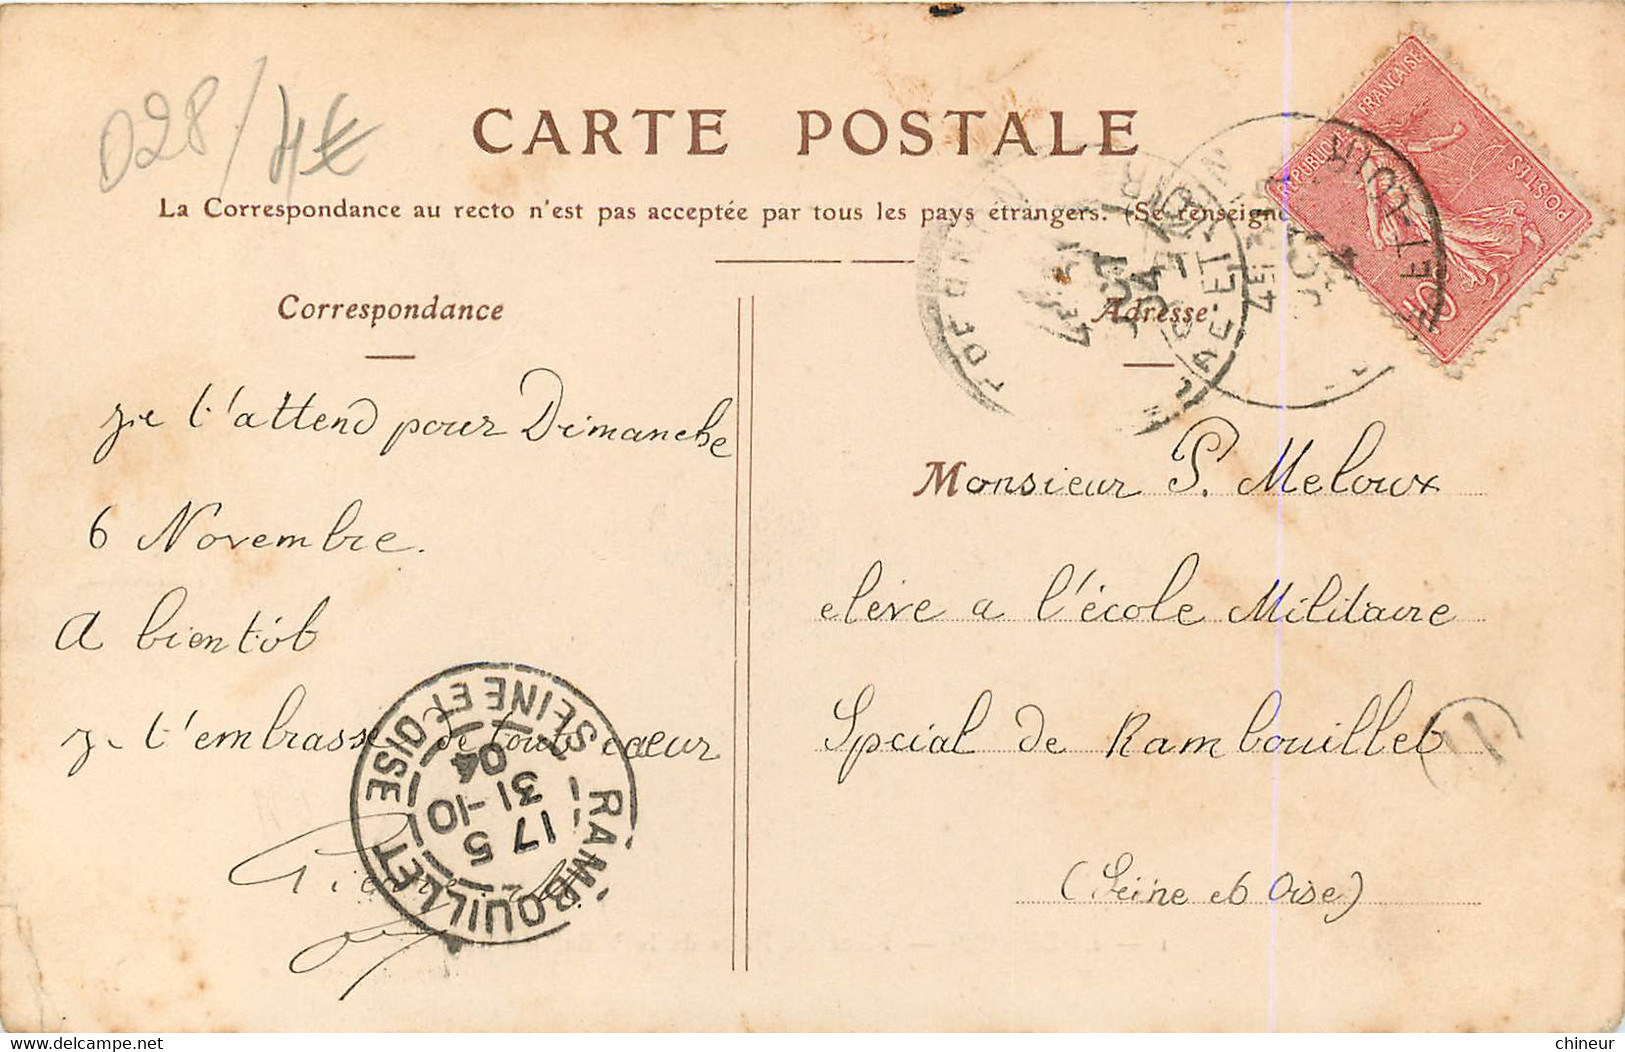 D28/4€
CARTE POSTALE
La Correspondance au recto n'est pas acceptée par tous les pays étrangers. (Se renseigne
REPUBLIQUE FRANÇAISE
POSTES
10
Correspondance
je t'attend pour Dimanche
6 Novembre.
A bientôt
je t'embrasse de tout cœur
Pierre
RAMBOUILLET
SEINE ET OISE
17 5
31-10
04
Adresse
Monsieur P. Meloux
elève a l'école Militaire
Spcial de Rambouillet
(Seine et Oise)
delcampe.net
chineur